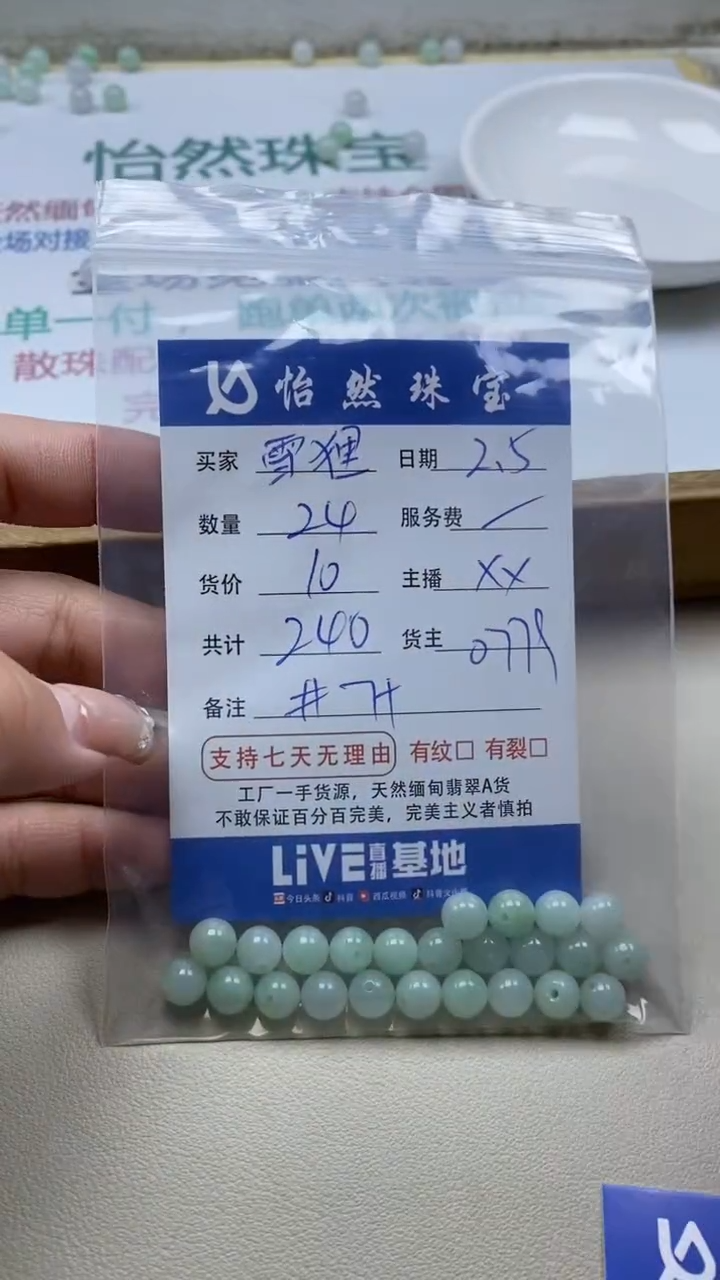 怡然珠宝
然缅甸
场对接
单一付，
散珠配
完
怡然珠宝
买家 雪狸 日期 2.5
数量 24 服务费 /
货价 10 主播 XX
共计 240 货主
备注 #7H
支持七天无理由 有纹□ 有裂□
工厂一手货源，天然缅甸翡翠A货
不敢保证百分百完美，完美主义者慎拍
LiVE直播基地
今日头条 抖音 西瓜视频 抖音火山版